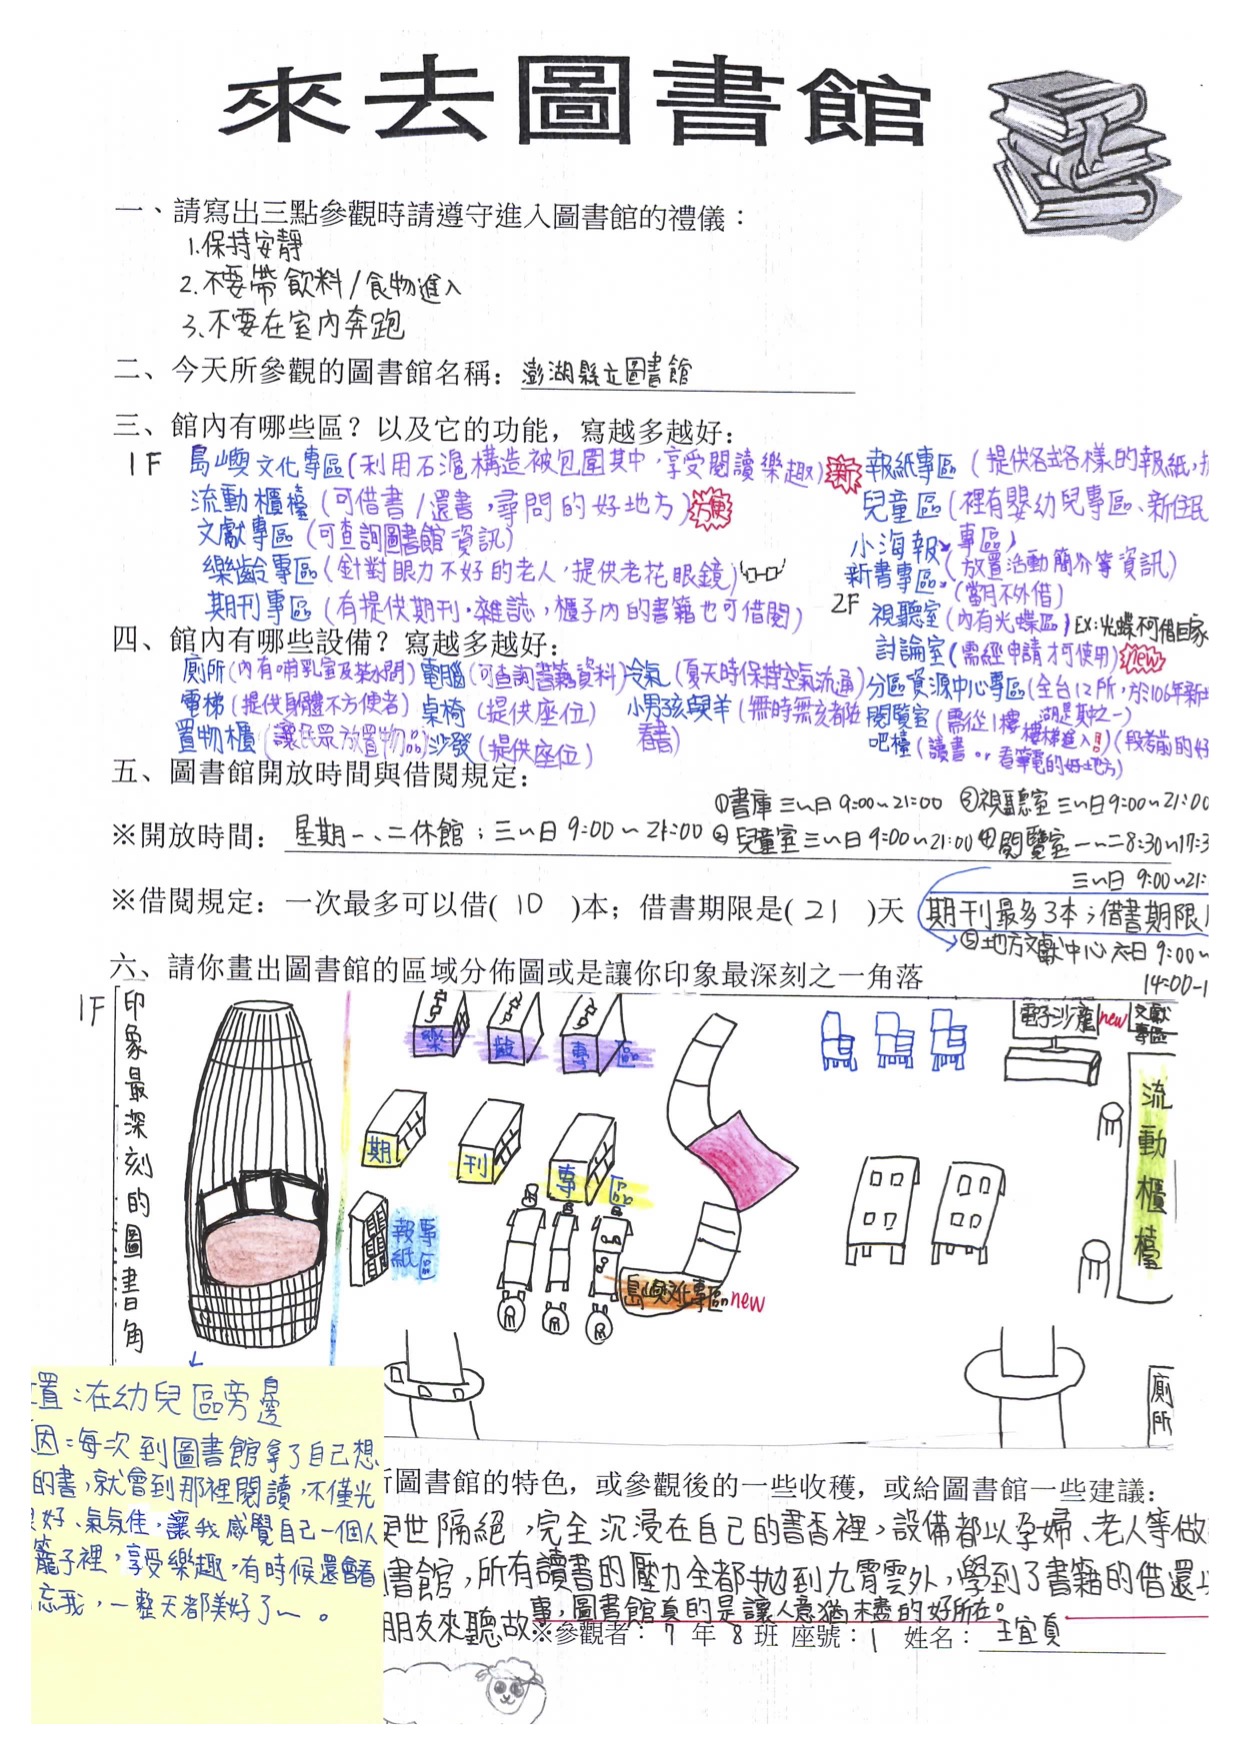 來去圖書館
一、請寫出三點參觀時請遵守進入圖書館的禮儀：
1.保持安靜
2.不要帶飲料/食物進入
3.不要在室內奔跑
二、今天所參觀的圖書館名稱：澎湖縣立圖書館
三、館內有哪些區？以及它的功能，寫越多越好：
1F 島嶼文化專區(利用石滬構造被包圍其中，享受閱讀樂趣)新
流動櫃檯(可借書/還書，尋問的好地方)方便
文獻專區(可查詢圖書館資訊)
樂齡專區(針對眼力不好的老人，提供老花眼鏡)
期刊專區(有提供期刊、雜誌，櫃子內的書籍也可借閱)
報紙專區(提供各式各樣的報紙，
兒童區(裡有嬰幼兒專區、新住民
專區)
小海報(放置活動簡介等資訊)
新書專區(當月不外借)
2F 視聽室(內有光蝶區)EX:光蝶不可借回家
討論室(需經申請才可使用)new
分區資源中心專區(全台12所，於106年新
湖是其中之一)
閱覽室(需從1樓樓梯進入!)(段考前的好
吧檯(讀書or看筆電的好地方)
四、館內有哪些設備？寫越多越好：
廁所(內有哺乳室及茶水間) 電腦(可查詢書籍資料) 冷氣(夏天時保持空氣流通)
電梯(提供身體不方便者) 桌椅(提供座位) 小男孩與羊(無時無刻都在
看書)
置物櫃(讓民眾放置物品) 沙發(提供座位)
五、圖書館開放時間與借閱規定：
①書庫 三~日 9:00~21:00 ③視聽室 三~日 9:00~21:00
※開放時間：星期一、二休館；三~日 9:00~21:00 ②兒童室 三~日 9:00~21:00 ④閱覽室 一~二 8:30~17:3
三~日 9:00~21:
※借閱規定：一次最多可以借( 10 )本；借書期限是( 21 )天 期刊最多3本；借書期限
⑤地方文獻中心 六日 9:00~
14:00-1
六、請你畫出圖書館的區域分佈圖或是讓你印象最深刻之一角落
1F
印象最深刻的圖書角
樂齡專區
期刊專區
報紙專區
島嶼文化專區new
電子沙龍new
文獻專區
流動櫃檯
廁所
置：在幼兒區旁邊
因：每次到圖書館拿了自己想
的書，就會到那裡閱讀，不僅光
好、氣氛佳，讓我感覺自己一個人
籠子裡，享受樂趣，有時候還會看
忘我，一整天都美好了~。
圖書館的特色，或參觀後的一些收穫，或給圖書館一些建議：
世隔絕，完全沉浸在自己的書香裡，設備都以孕婦、老人等做
書館，所有讀書的壓力全都拋到九霄雲外，學到了書籍的借還
朋友來聽故事，圖書館真的是讓人意猶未盡的好所在。
※參觀者：7 年 8 班 座號：1 姓名：王宜真